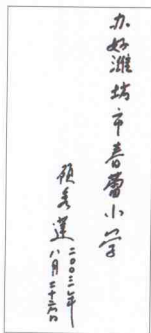 办好潍坊市春蕾小学
顾秀莲
二〇〇二年
八月二十六日